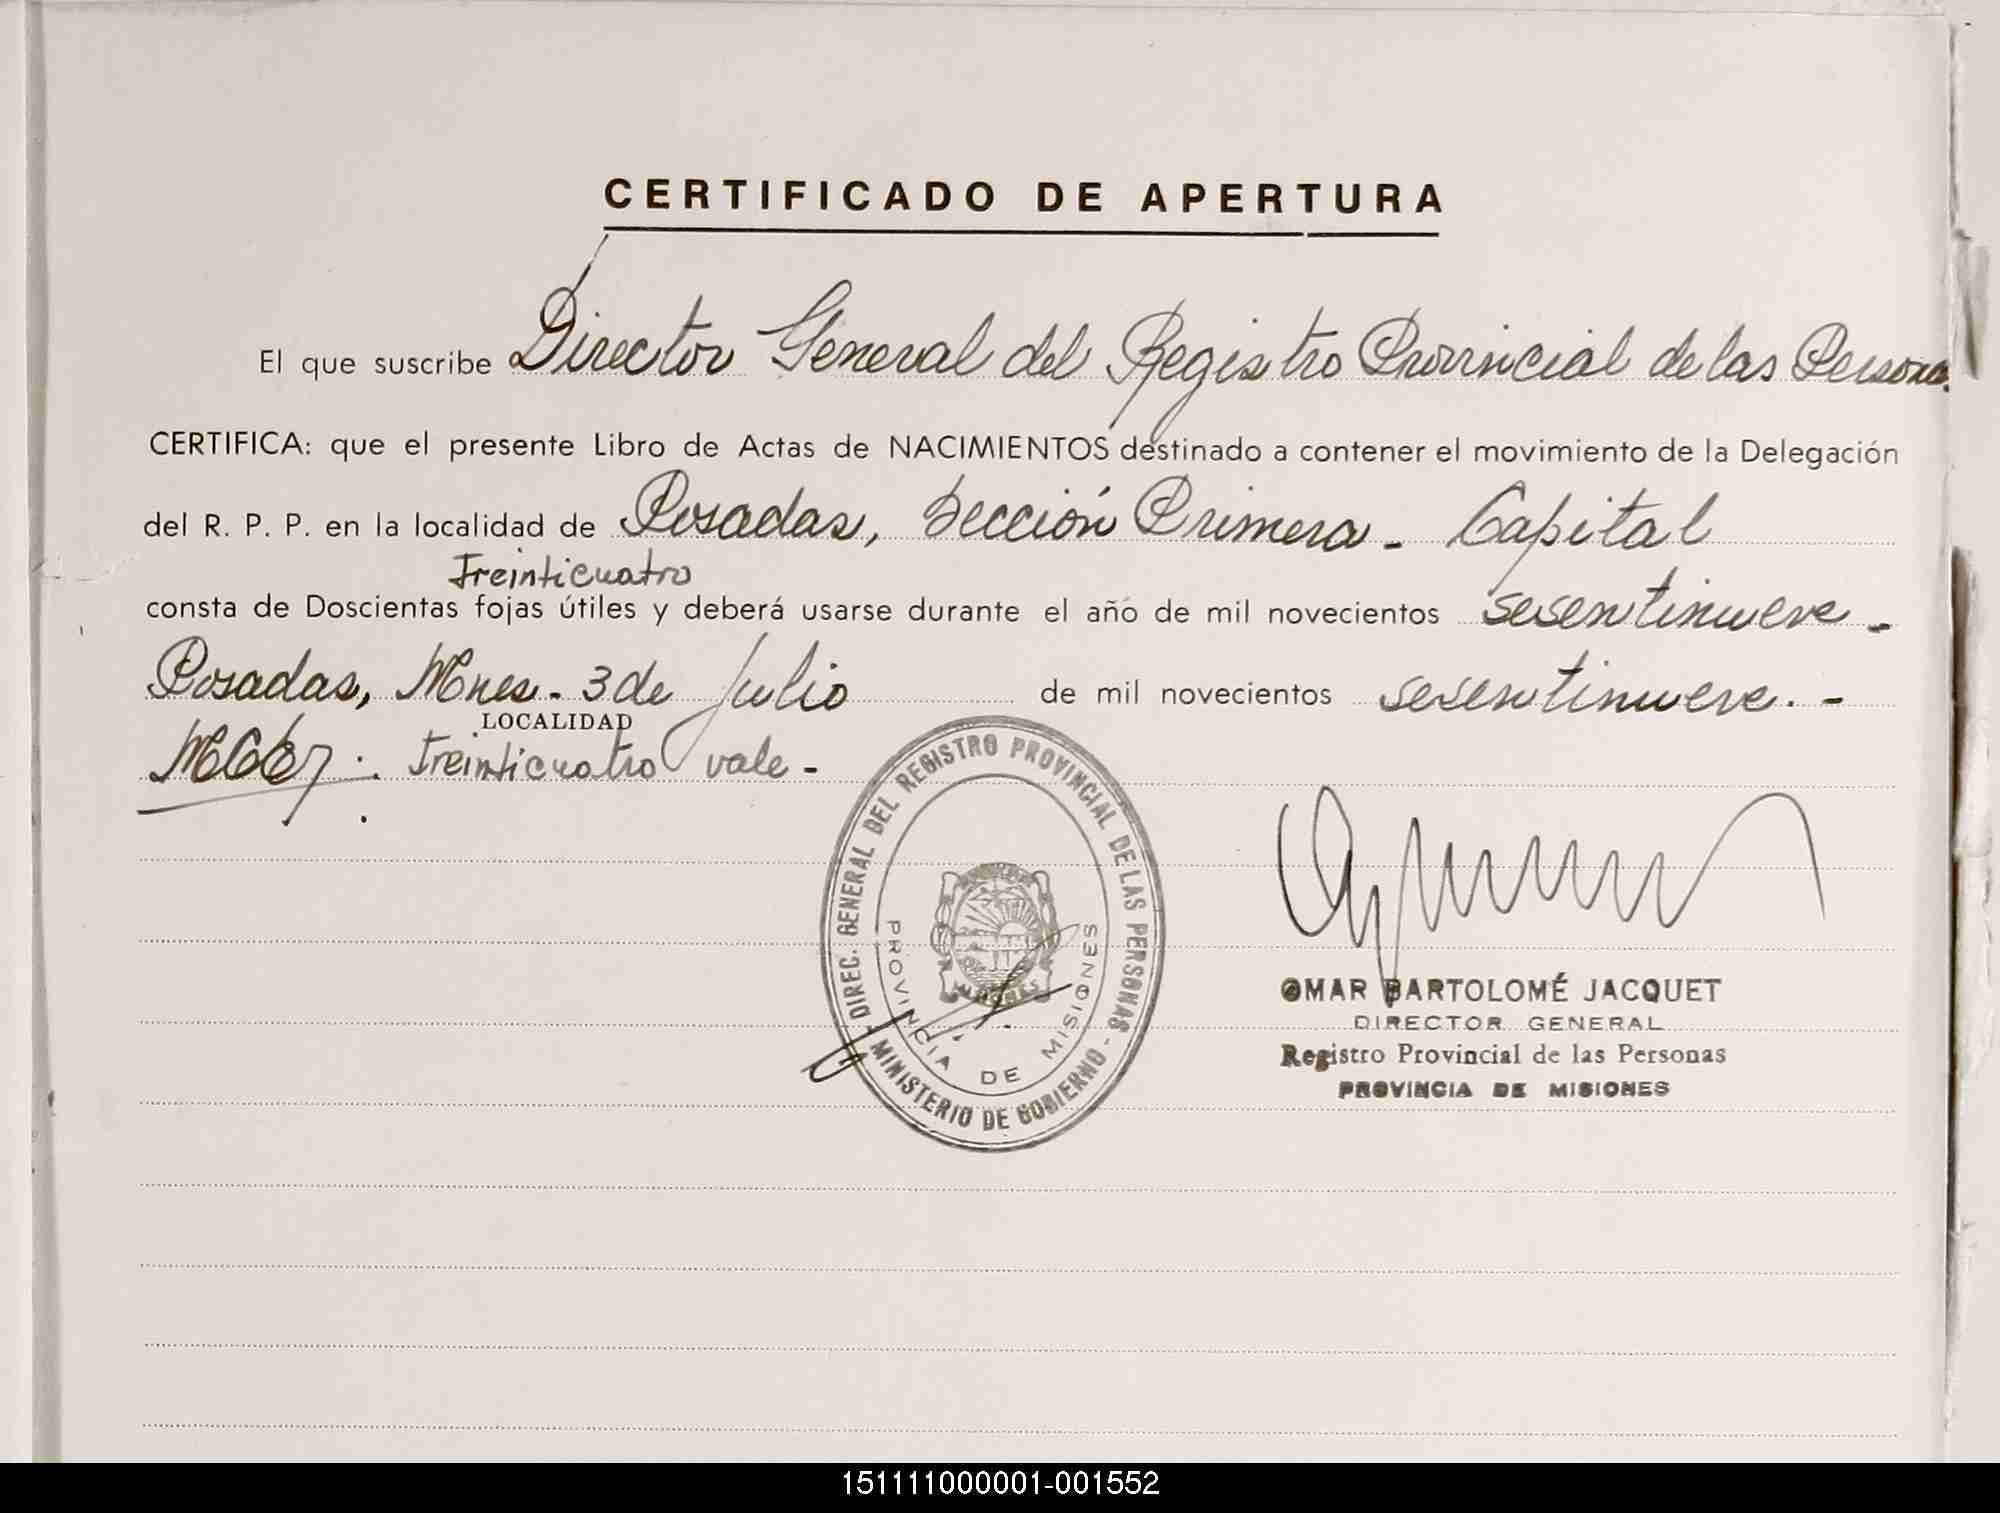 CERTIFICADO DE APERTURA
El que suscribe Director General del Registro Provincial de las Persona.
CERTIFICA: que el presente Libro de Actas de NACIMIENTOS destinado a contener el movimiento de la Delegación
del R. P. P. en la localidad de Posadas, Sección Primera - Capital
Treinticuatro
consta de Doscientas fojas útiles y deberá usarse durante el año de mil novecientos sesentinueve -
Posadas, Mnes. 3 de Julio de mil novecientos sesentinueve. -
LOCALIDAD
Treinticuatro vale -
DIREC. GENERAL DEL REGISTRO PROVINCIAL DE LAS PERSONAS -
MINISTERIO DE GOBIERNO -
PROVINCIA DE MISIONES
MISIONES
OMAR BARTOLOMÉ JACQUET
DIRECTOR GENERAL
Registro Provincial de las Personas
PROVINCIA DE MISIONES
151111000001-001552